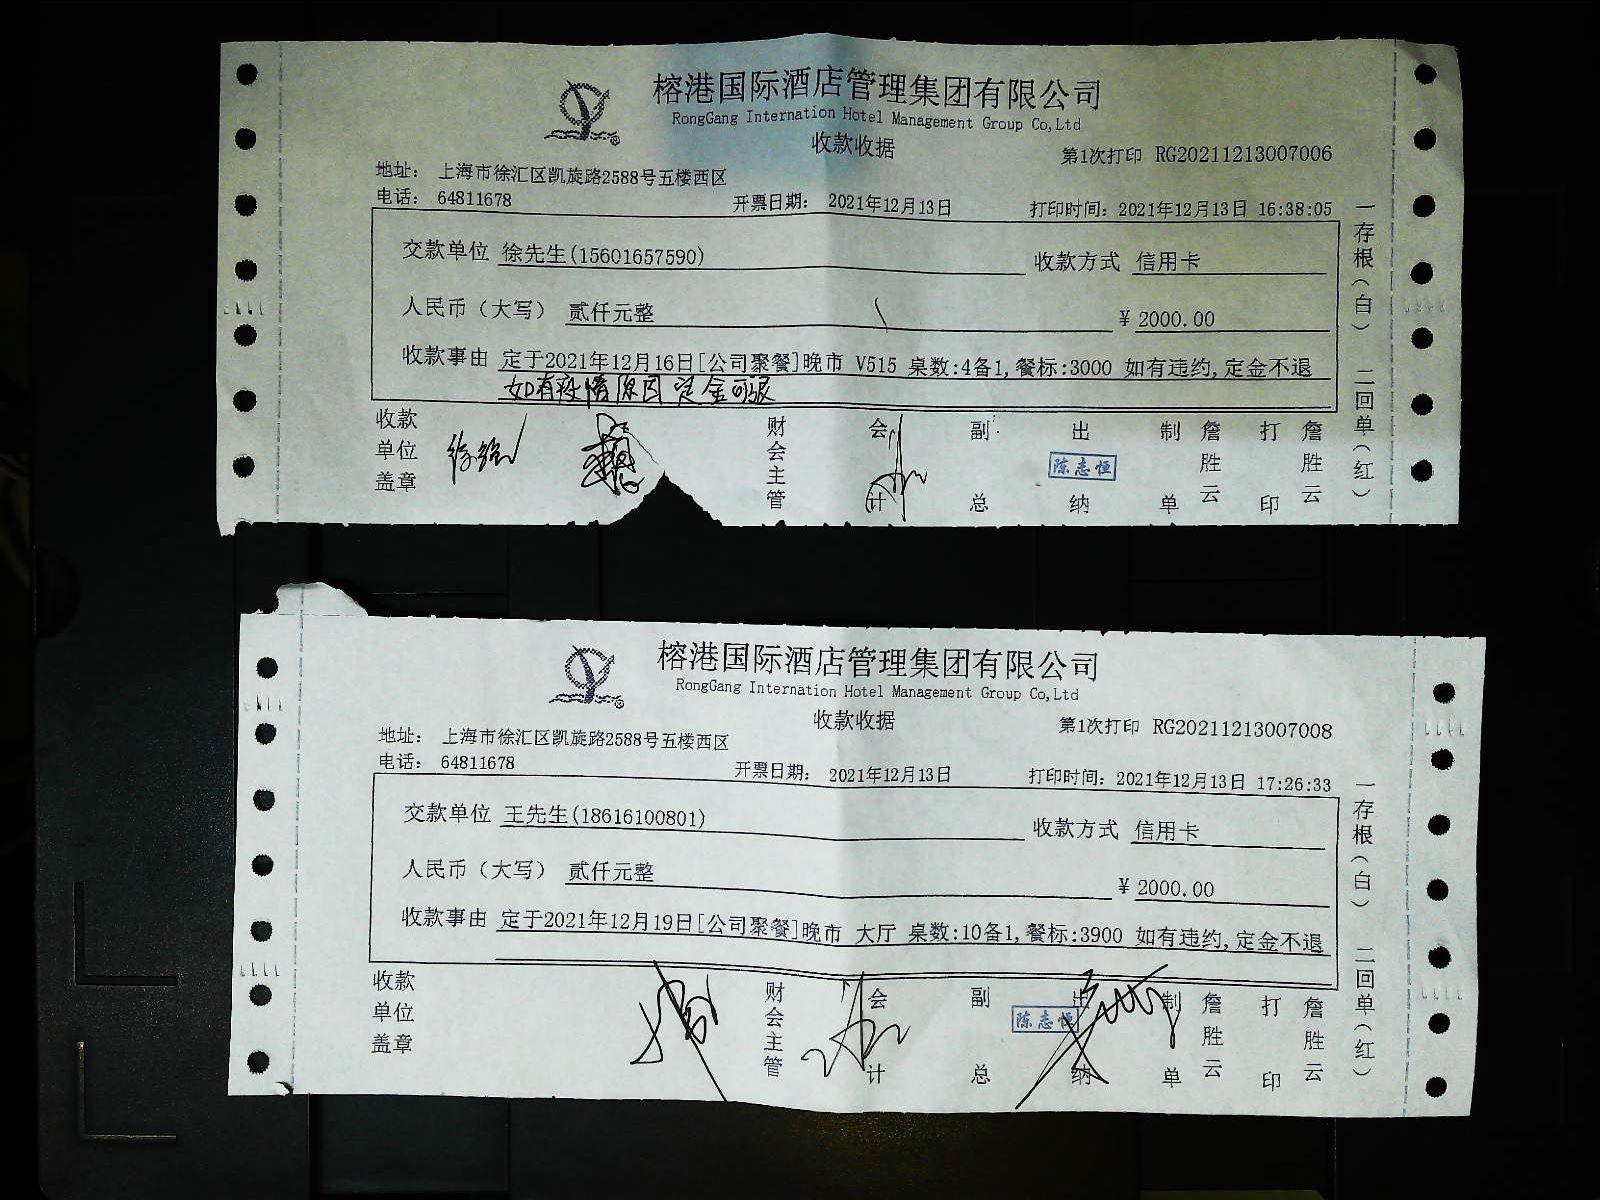 榕港国际酒店管理集团有限公司
RongGang Internation Hotel Management Group Co,Ltd
收款收据
第1次打印 RG20211213007006
地址： 上海市徐汇区凯旋路2588号五楼西区
电话： 64811678
开票日期： 2021年12月13日
打印时间：2021年12月13日 16:38:05
交款单位 徐先生(15601657590)
收款方式 信用卡
人民币（大写） 贰仟元整
¥ 2000.00
收款事由 定于2021年12月16日[公司聚餐]晚市 V515 桌数:4备1,餐标:3000 如有违约,定金不退
如有疫情原因 定金可退
收款单位盖章
财会主管
会计
副总
出纳
陈志恒
制单
詹胜云
打印
詹胜云
一存根（白） 二回单（红）
榕港国际酒店管理集团有限公司
RongGang Internation Hotel Management Group Co,Ltd
收款收据
第1次打印 RG20211213007008
地址： 上海市徐汇区凯旋路2588号五楼西区
电话： 64811678
开票日期： 2021年12月13日
打印时间：2021年12月13日 17:26:33
交款单位 王先生(18616100801)
收款方式 信用卡
人民币（大写） 贰仟元整
¥ 2000.00
收款事由 定于2021年12月19日[公司聚餐]晚市 大厅 桌数:10备1,餐标:3900 如有违约,定金不退
收款单位盖章
财会主管
会计
副总
出纳
陈志恒
制单
詹胜云
打印
詹胜云
一存根（白） 二回单（红）